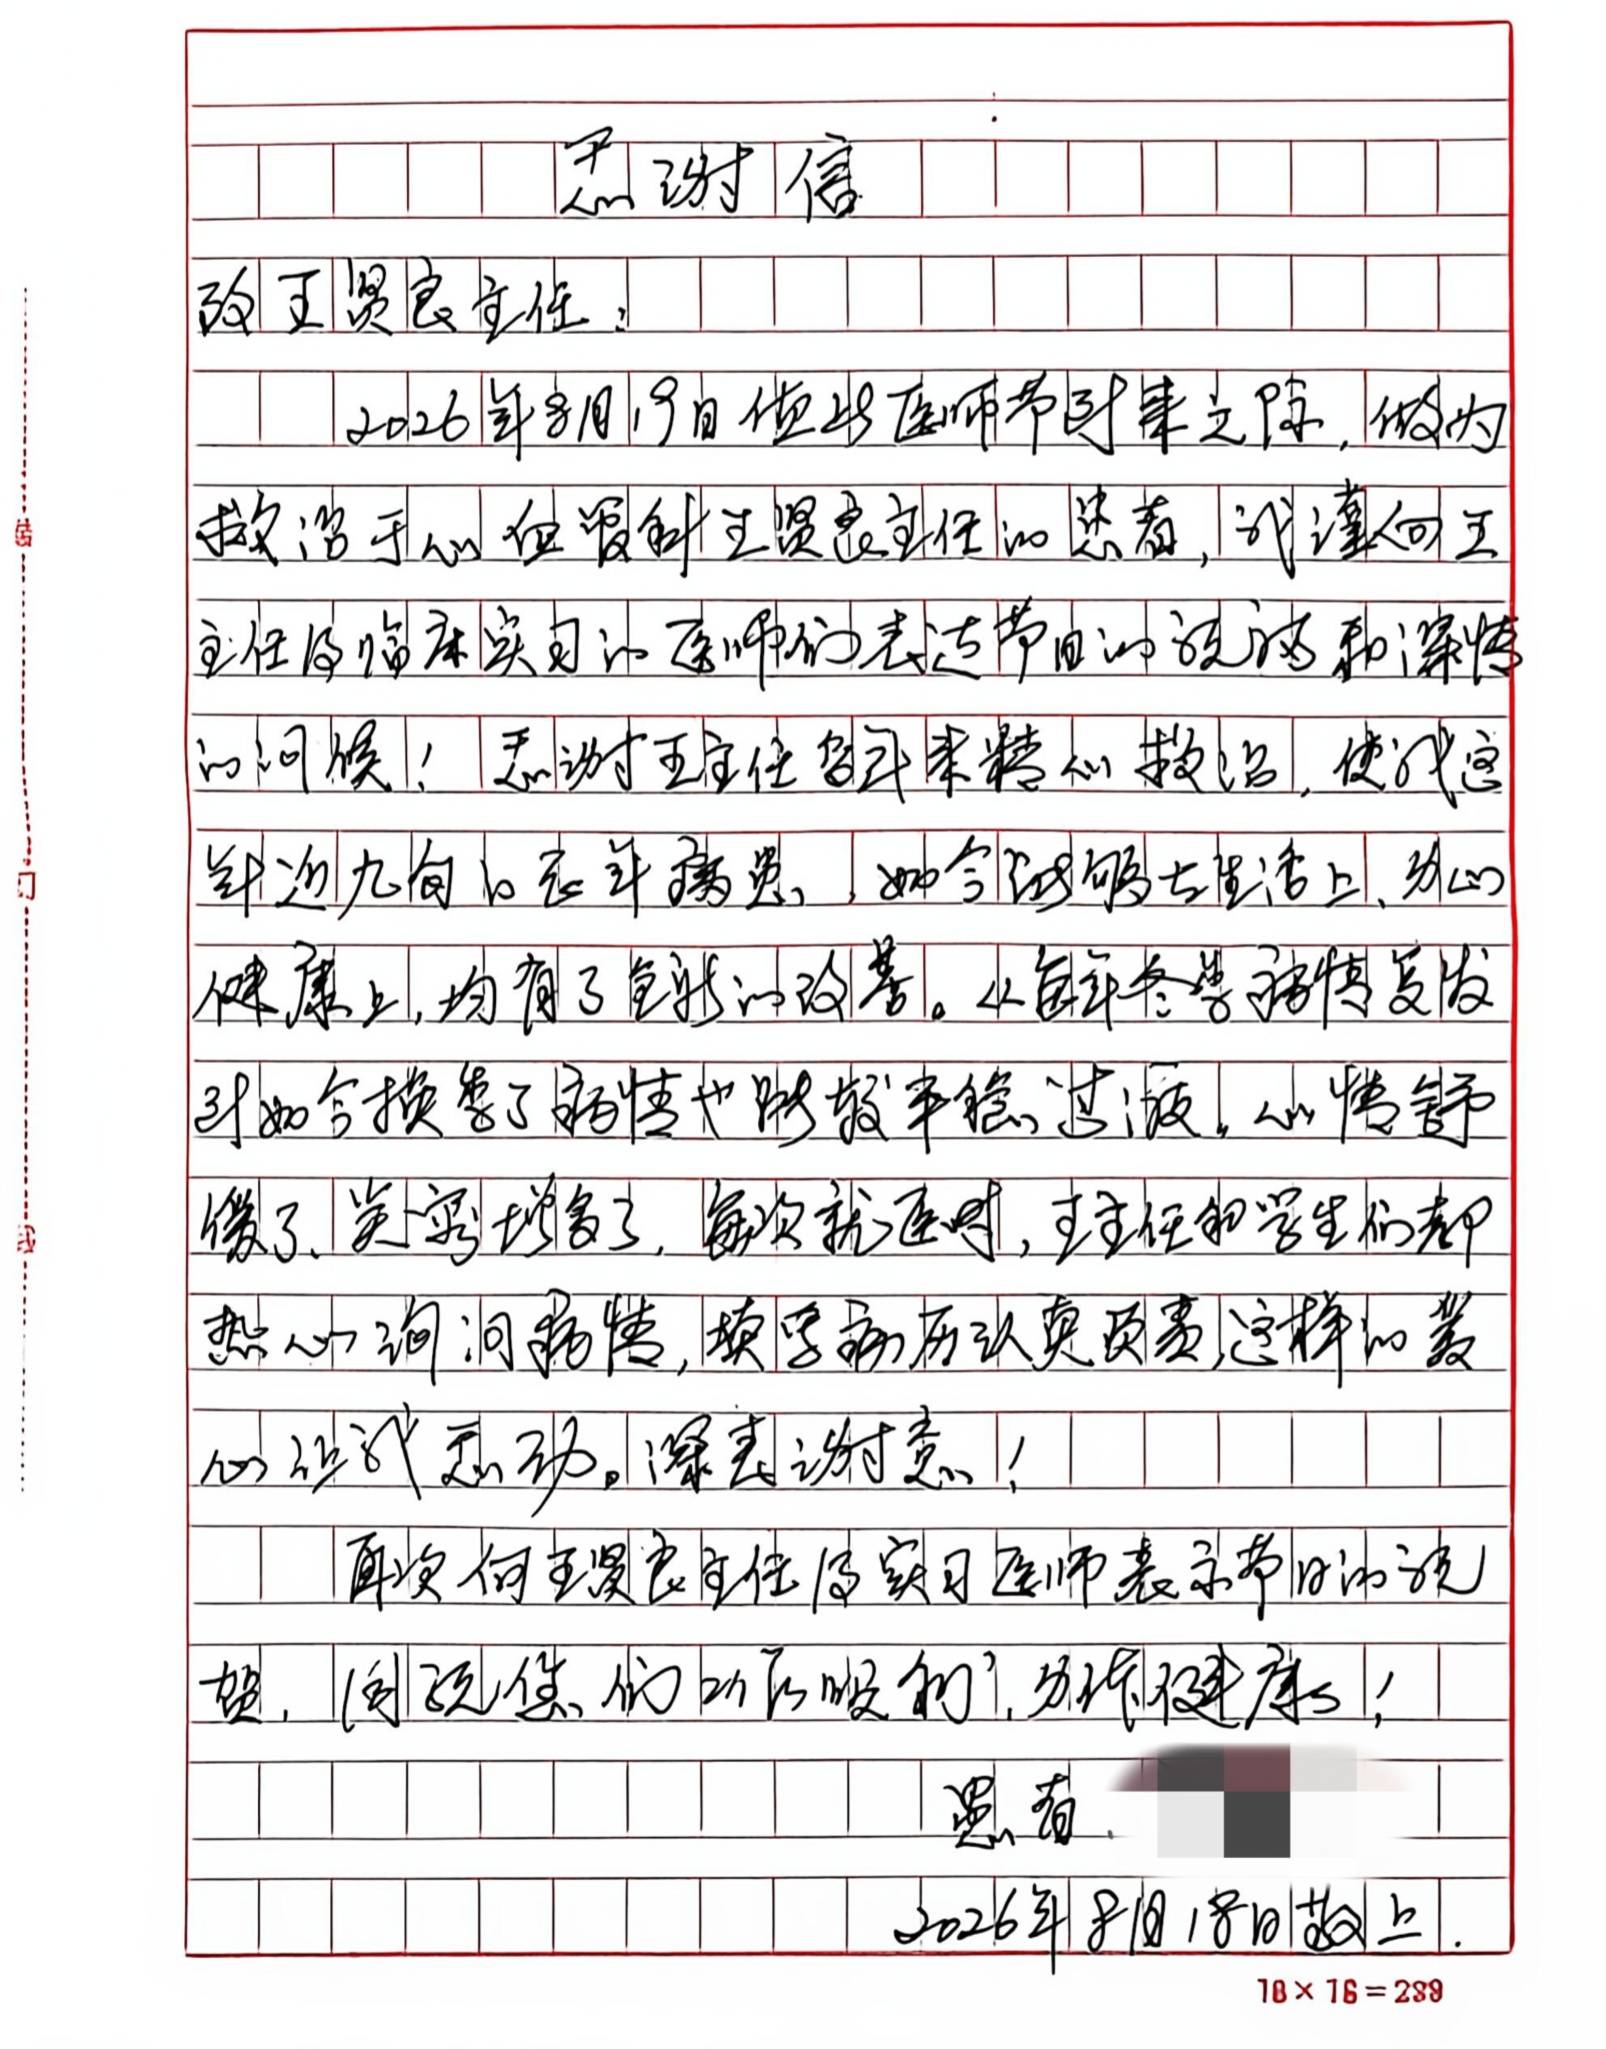 感谢信
致王贤良主任：
2026年8月19日值此医师节到来之际，做为
救治于心血管科王贤良主任的患者，我谨向王
主任及临床实习的医师们表达节日的祝福和深情
的问候！感谢王主任多年来精心救治，使我这
年近九旬的老年病患，如今能够在生活上、身心
健康上，均有了全新的改善。从每年冬季病情复发
到如今换季了病情也能较平稳过渡，心情舒
缓了、笑容增多了，每次就医时，王主任和学生们都
热心询问病情，填写病历认真负责，这样的爱
心让我感动。深表谢意！
再次向王贤良主任及实习医师表示节日的祝
贺，同祝您们工作顺利，身体健康！
患者.
2026年8月18日敬上.
18×16=288
装
订
线